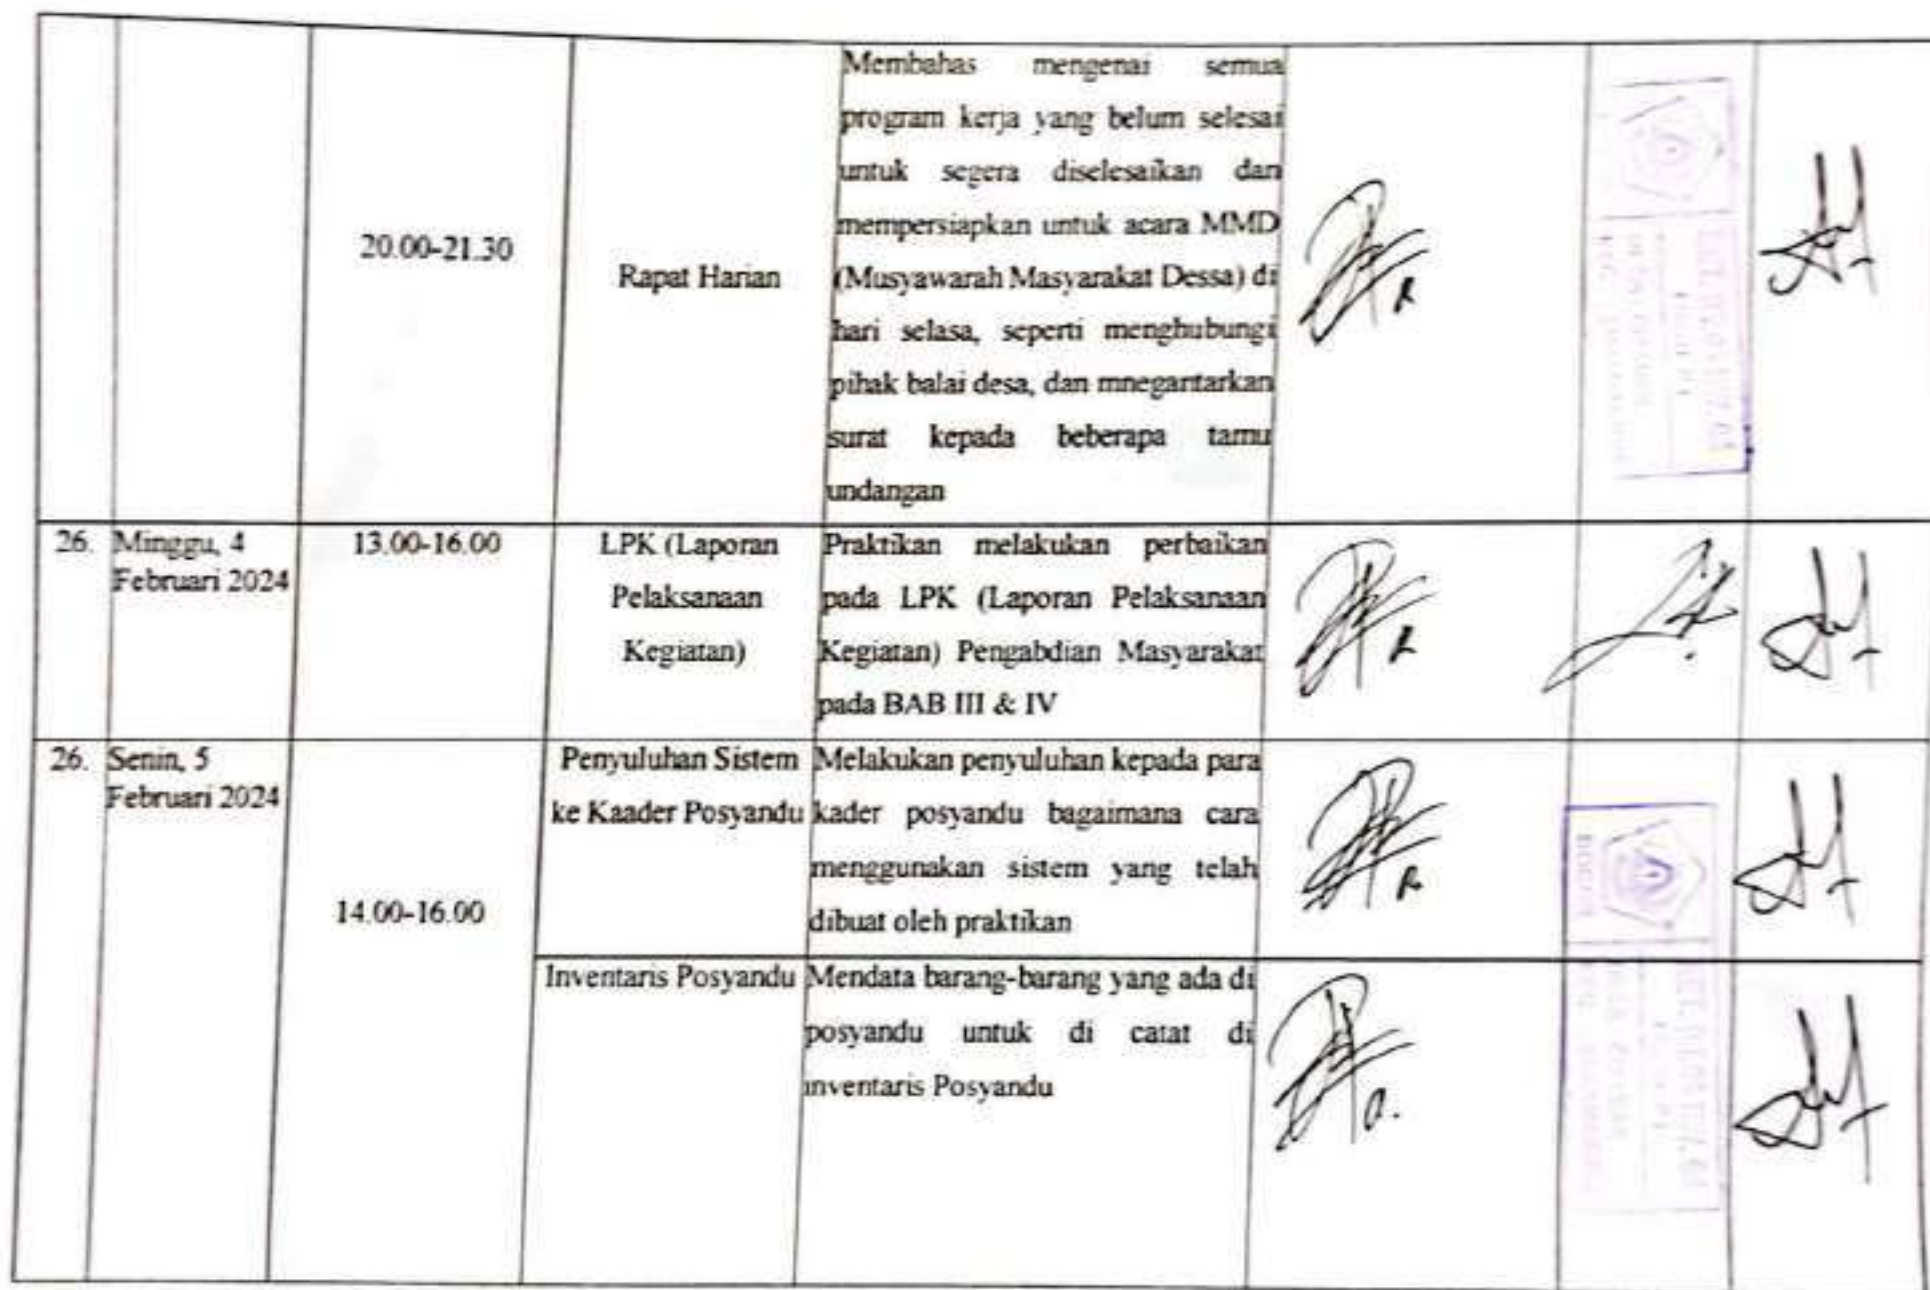 20.00-21.30
Rapat Harian
Membahas mengenai semua
program kerja yang belum selesai
untuk segera diselesaikan dan
mempersiapkan untuk acara MMD
(Musyawarah Masyarakat Dessa) di
hari selasa, seperti menghubungi
pihak balai desa, dan mnegantarkan
surat kepada beberapa tamu
undangan
26.
Minggu, 4
Februari 2024
13.00-16.00
LPK (Laporan
Pelaksanaan
Kegiatan)
Praktikan melakukan perbaikan
pada LPK (Laporan Pelaksanaan
Kegiatan) Pengabdian Masyarakat
pada BAB III & IV
26.
Senin, 5
Februari 2024
14.00-16.00
Penyuluhan Sistem
ke Kaader Posyandu
Melakukan penyuluhan kepada para
kader posyandu bagaimana cara
menggunakan sistem yang telah
dibuat oleh praktikan
Inventaris Posyandu
Mendata barang-barang yang ada di
posyandu untuk di catat di
inventaris Posyandu